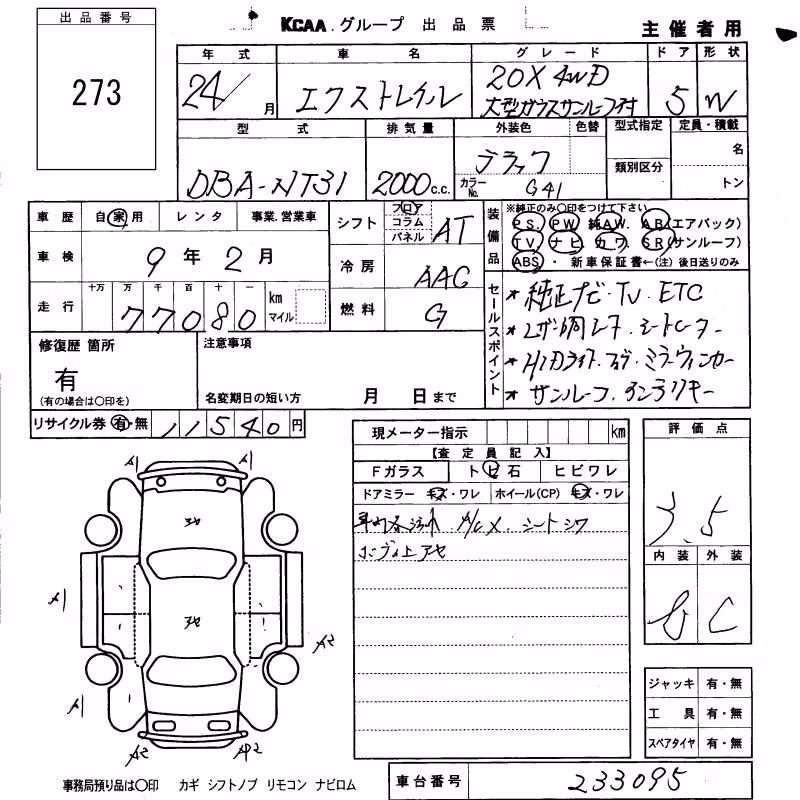 出品番号
273
KCAA.グループ 出品票
主催者用
年式 車名 グレード ドア 形状
24/ 月 エクストレイル 20X 4WD 5 W
大型ガラスサンルーフ付
型式 排気量 外装色 色替 型式指定 定員・積載
DBA-NT31 2000 c.c. ブラック 名
カラーNo. G41 類別区分 トン
車歴 自家用 レンタ 事業.営業車
シフト フロア コラム パネル AT
車検 9年 2月
冷房 AAC
走行 十万 万 千 百 十 一 77080 km マイル
燃料 G
装備品
※純正のみ〇印をつけて下さい
PS. PW. 純AW. AB(エアバック)
TV. ナビ. カワ. SR(サンルーフ)
ABS ・ 新車保証書←(注) 後日送りのみ
セールスポイント
* 純正ナビ.TV.ETC
* レザー調シート.シートヒーター
* HIDライト.フォグ.ミラーウィンカー
* サンルーフ.インテリキー
修復歴 箇所
有
(有の場合は〇印を)
注意事項
名変期日の短い方 月 日まで
リサイクル券 有 無 11540円
現メーター指示 km
【査定員記入】
Fガラス トビ石 ヒビワレ
ドアミラー キズ・ワレ ホイール(CP) キズ・ワレ
車内各汚れ A/C X. シートシワ
ボディ上アセ
評価点
3.5
内装 外装
C
A1 A1
アセ
A1
アセ
A2
A1
A2 A2
ジャッキ 有・無
工具 有・無
スペアタイヤ 有・無
事務局預り品は〇印 カギ シフトノブ リモコン ナビロム
車台番号 233095